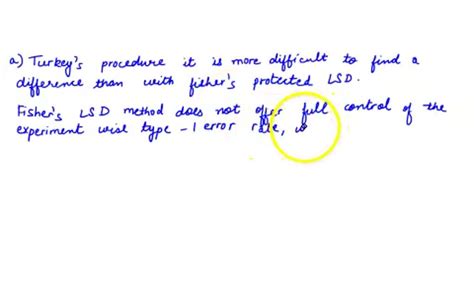 a) Turkey's procedure it is more difficult to find a
difference than with fisher's protected LSD.
Fisher's LSD method does not offer full control of the
experiment wise type -1 error rate, w